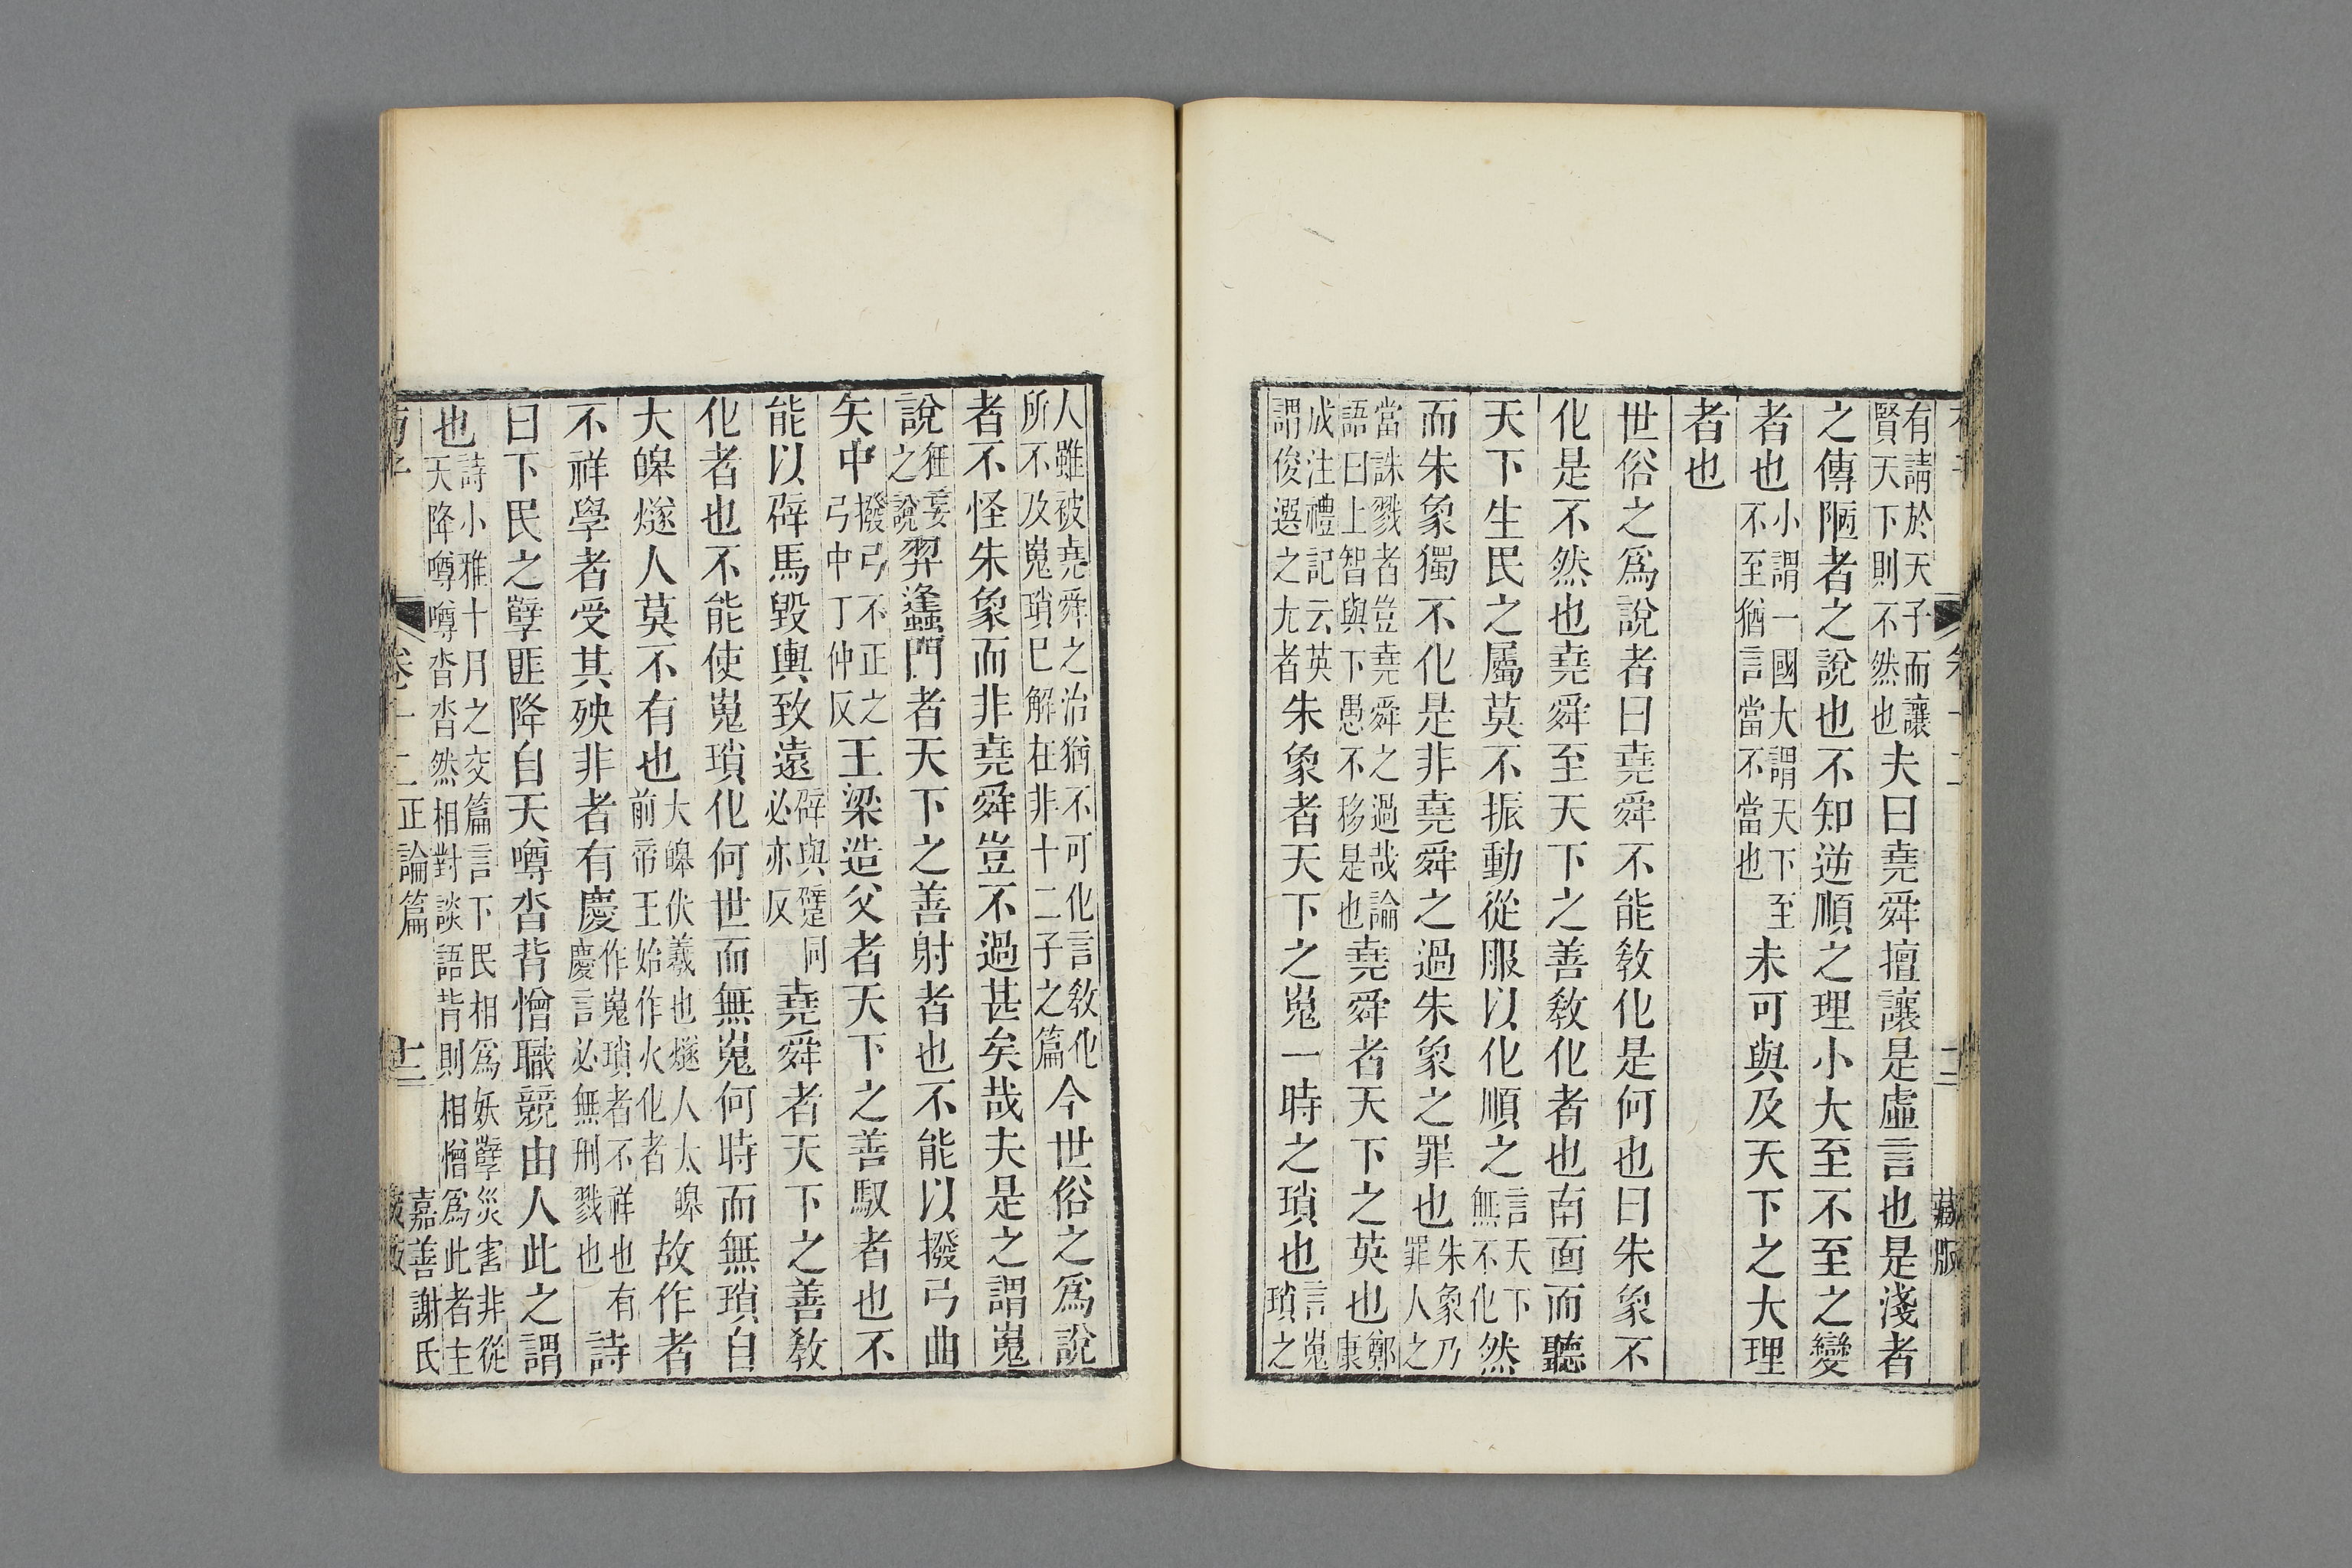 有請於天子而讓賢天下則不然也夫曰堯舜擅讓是虛言也是淺者
之傳陋者之說也不知逆順之理小大至不至之變
者也小謂一國大謂天下至不至猶言當不當也未可與及天下之大理
者也
世俗之爲說者曰堯舜不能敎化是何也曰朱象不
化是不然也堯舜至天下之善敎化者也南面而聽
天下生民之屬莫不振動從服以化順之言天下無不化然
而朱象獨不化是非堯舜之過朱象之罪也朱象乃罪人之
當誅戮者豈堯舜之過哉論語曰上智與下愚不移是也堯舜者天下之英也鄭康
成注禮記云英謂俊選之尤者朱象者天下之嵬一時之瑣也言嵬瑣之
人雖被堯舜之治猶不可化言敎化所不及嵬瑣巳解在非十二子之篇今世俗之爲說
者不怪朱象而非堯舜豈不過甚矣哉夫是之謂嵬
說狂妄之說羿蠭門者天下之善射者也不能以撥弓曲
矢中撥弓不正之弓中丁仲反王梁造父者天下之善馭者也不
能以辟馬毀輿致遠辟與躄同必亦反堯舜者天下之善敎
化者也不能使嵬瑣化何世而無嵬何時而無瑣自
大皞燧人莫不有也大皞伏羲也燧人太皞前帝王始作火化者故作者
不祥學者受其殃非者有慶作嵬瑣者不祥也有慶言必無刑戮也詩
曰下民之孽匪降自天噂沓背憎職競由人此之謂
也詩小雅十月之交篇言下民相爲妖孽災害非從天降噂噂沓沓然相對談語背則相憎爲此者主
荀子 卷十二 正論篇 十二 嘉善謝氏藏版